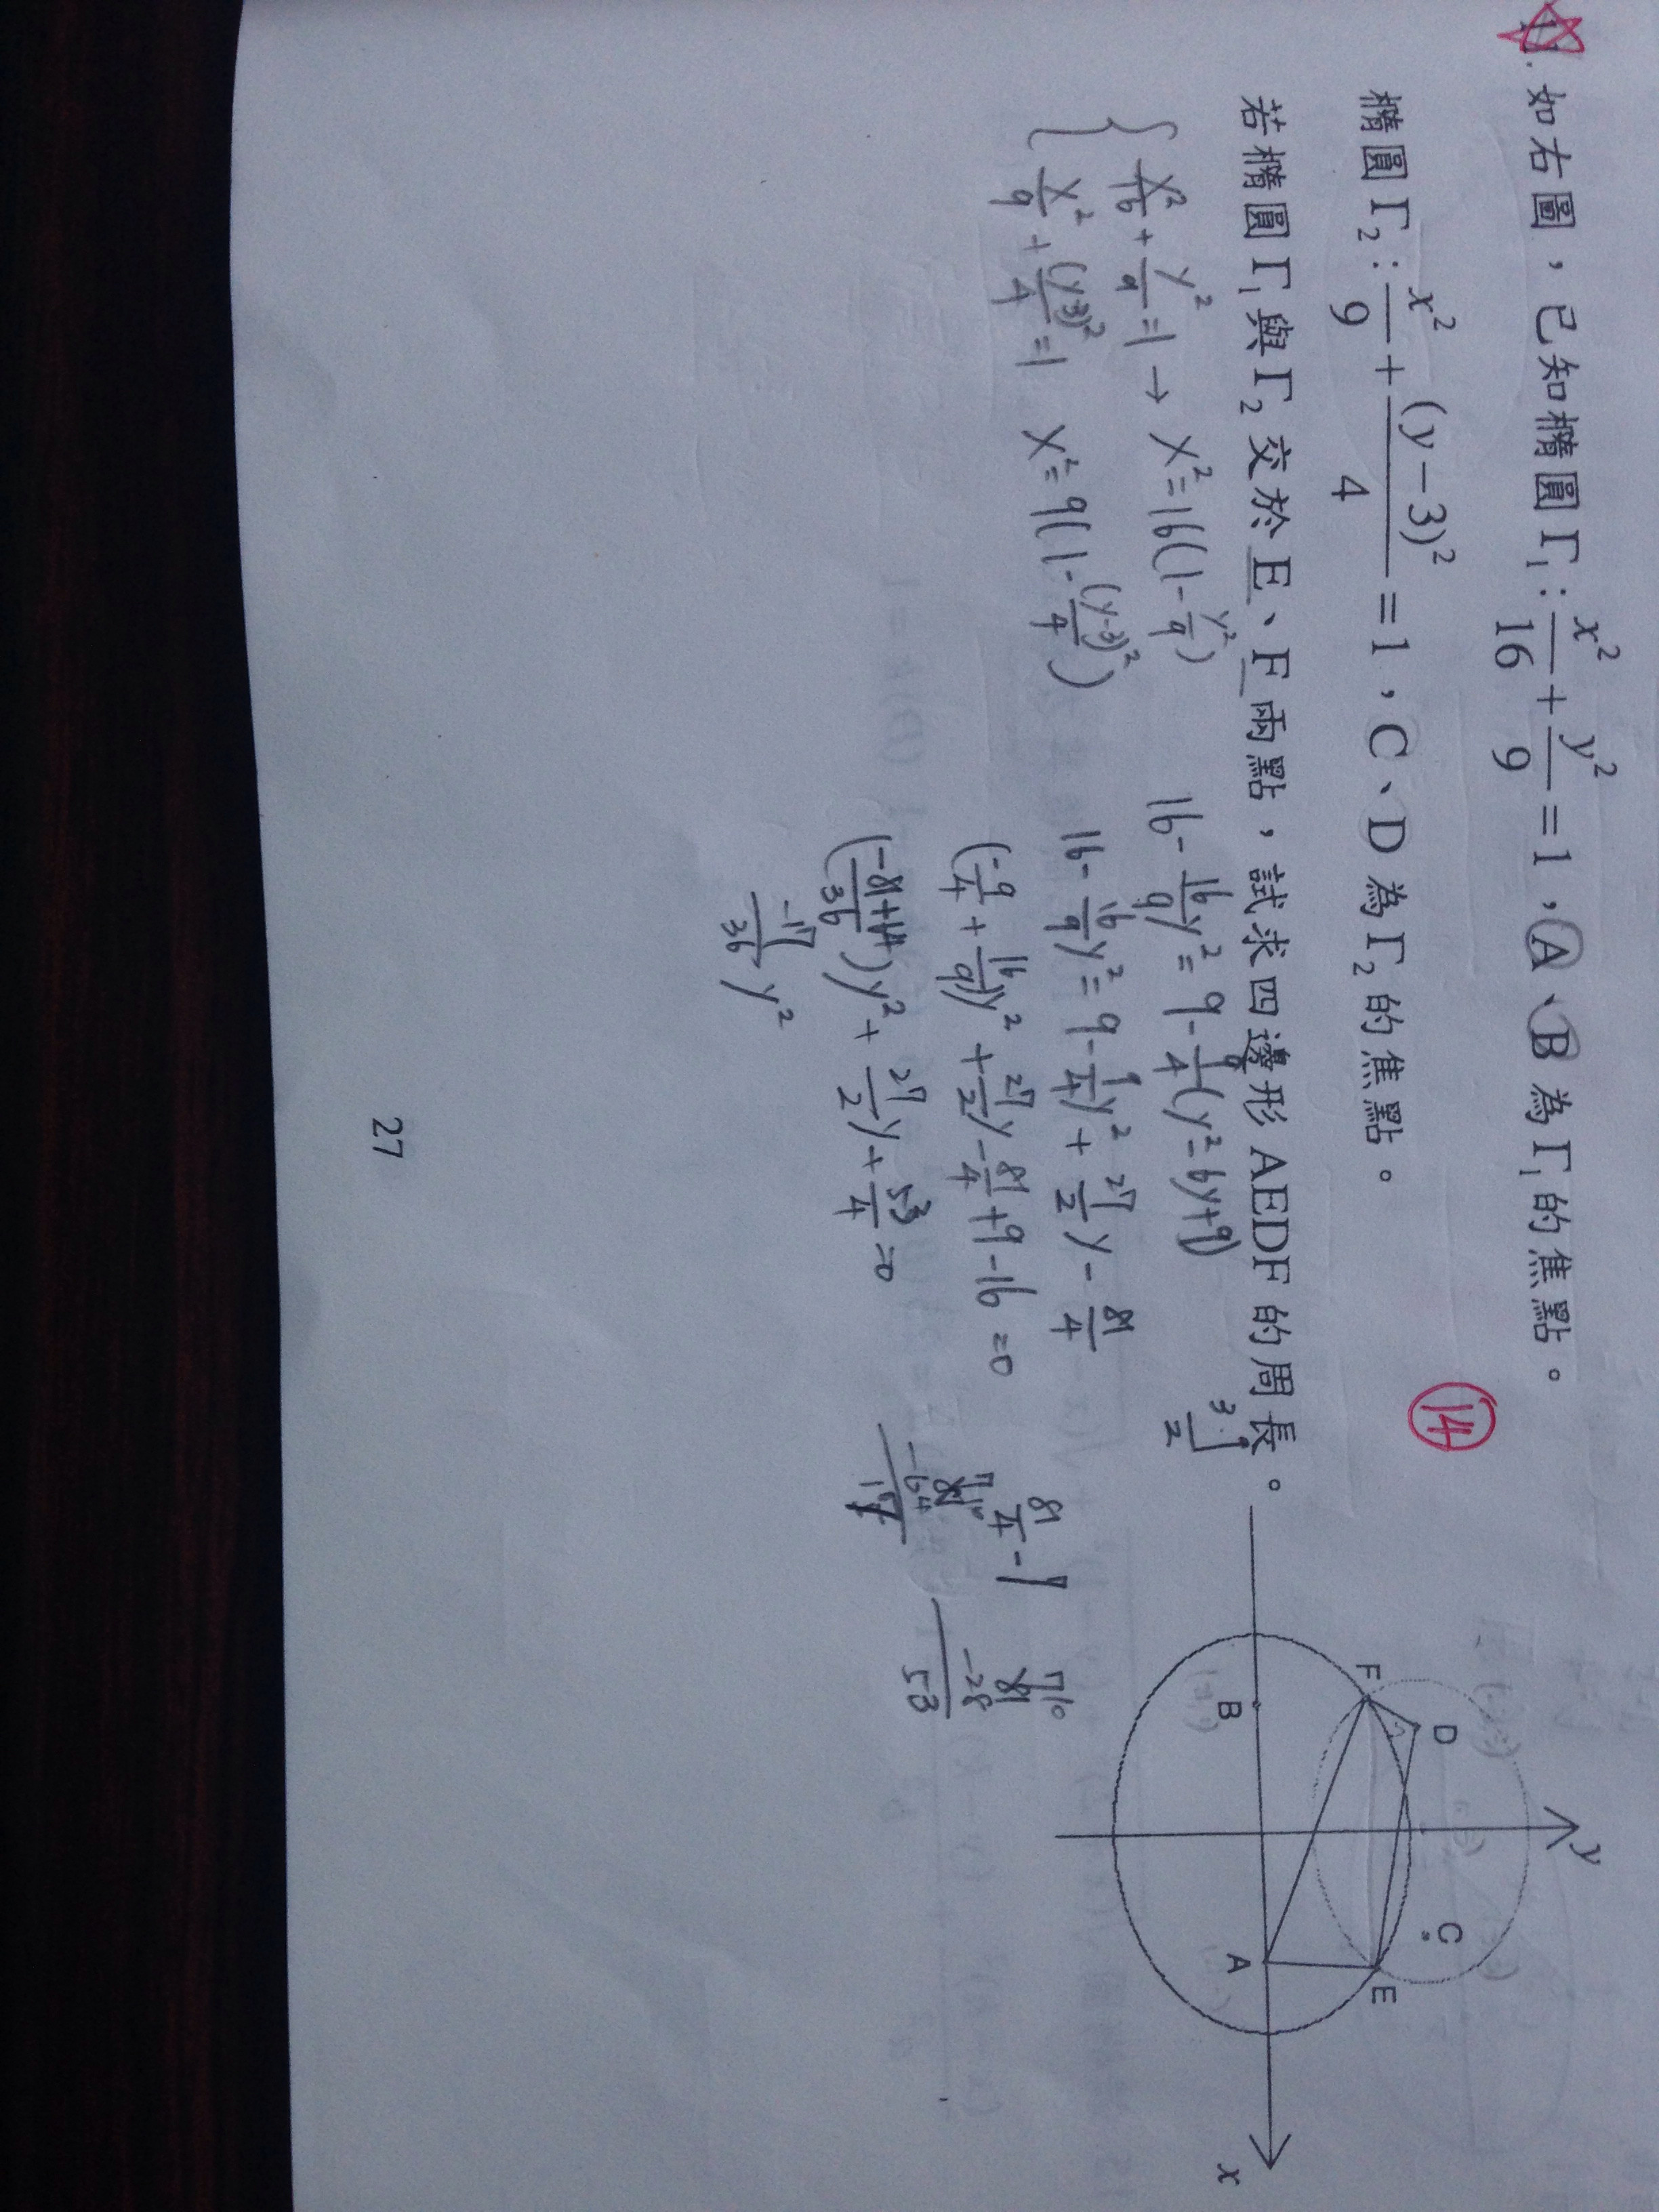 11. 如右圖，已知橢圓Γ₁：x²/16 + y²/9 = 1，A、B 為Γ₁的焦點。
橢圓Γ₂：x²/9 + (y−3)²/4 = 1，C、D 為Γ₂的焦點。
⑭
若橢圓Γ₁與Γ₂交於E、F兩點，試求四邊形AEDF的周長。
x²/16 + y²/9 = 1 → x² = 16(1 - y²/9)
x²/9 + (y-3)²/4 = 1 x² = 9(1 - (y-3)²/4)
16 - 16/9 y² = 9 - 9/4 (y² - 6y + 9)
16 - 16/9 y² = 9 - 9/4 y² + 27/2 y - 81/4
(-9/4 + 16/9)y² + 27/2 y - 81/4 + 9 - 16 = 0
(-81+64/36)y² + 27/2 y + 53/4 = 0
-17/36 y²
81/4 - 7
81
-64
17
81
-28
53
y
D
C
F
E
B
A
x
27